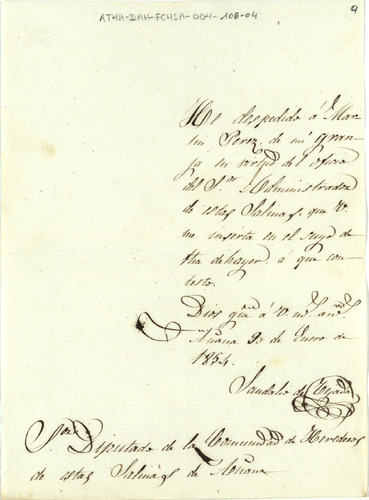 ATHA-DAH-FCHSA-004-106-04
4
He despedido á Mar
tin Perez de mi gran
ja en virtud del oficio
del Sor Administrador
de estas Salinas, que V.
me inserta en el suyo de
fha de hayer á que con
testo.
Dios gue á V. ms. años
Añana 20 de Enero de
1854.
Sandalio de Tejada
Sor Diputado de la Comunidad de Herederos
de estas Salinas de Añana